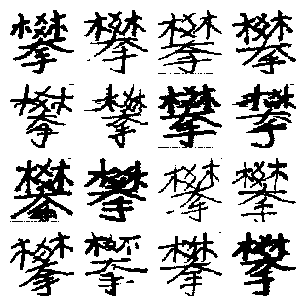 攀攀攀攀
攀攀攀攀
攀攀攀攀
攀攀攀攀